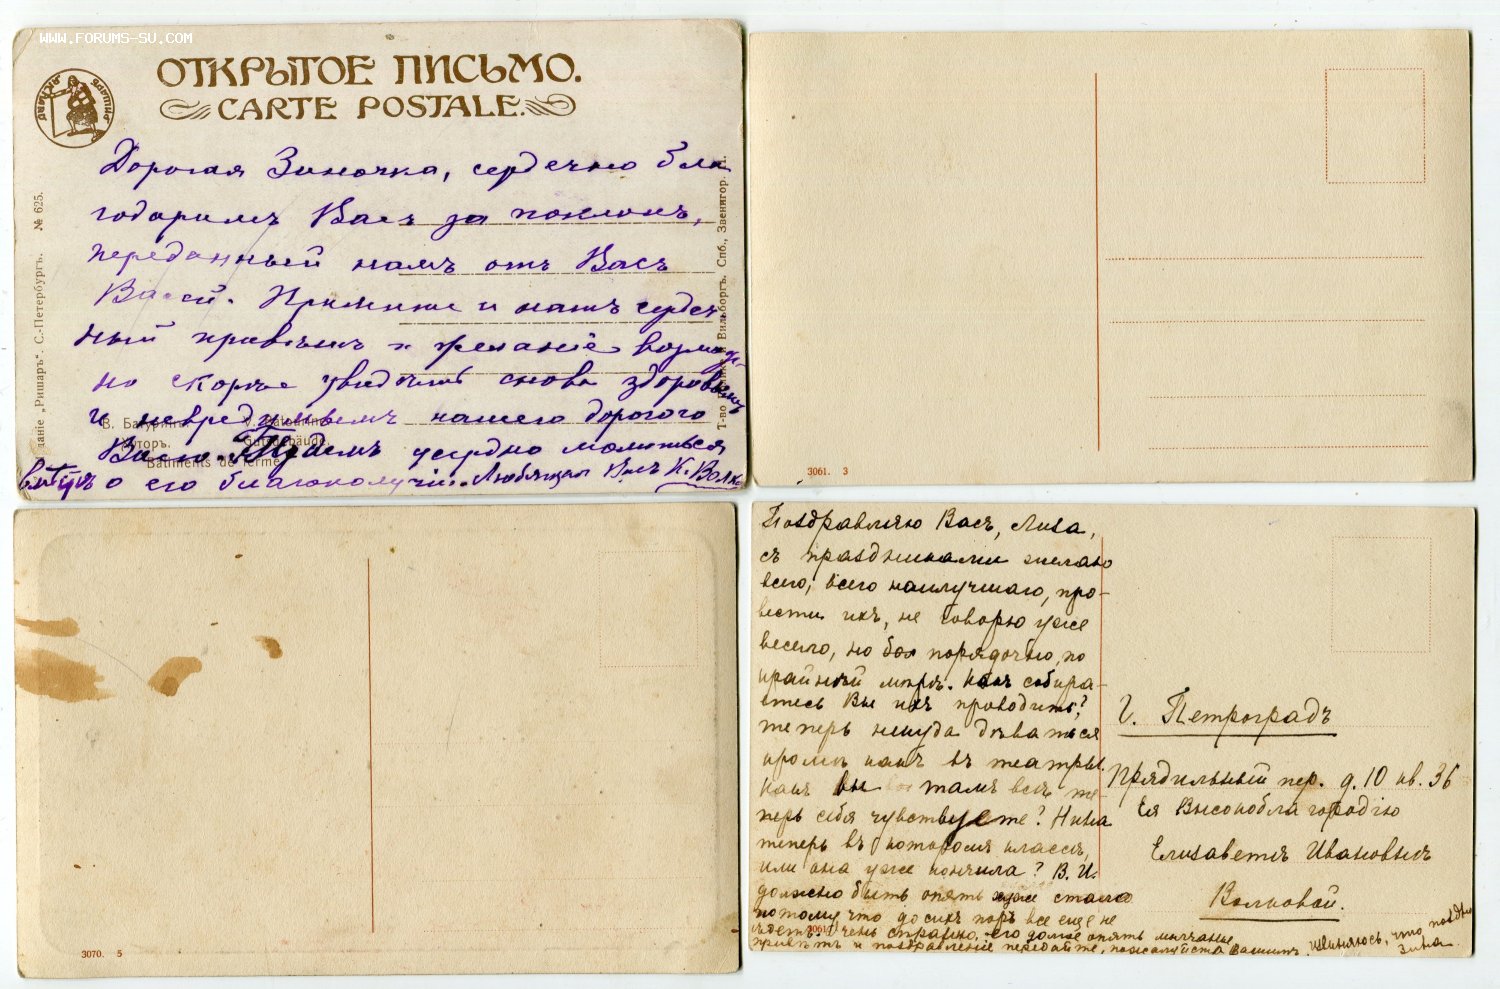 WWW.FORUMS-SU.COM
ОТКРЫТОЕ ПИСЬМО.
CARTE POSTALE.
РИШАРЪ
Дорогая Зиночка, сердечно бла
годаримъ Васъ за поклонъ,
переданный намъ отъ Васъ
Васей. Примите и нашъ сердеч
ный привѣтъ и желаніе возмож
но скорѣе увидѣть снова здоровымъ
и невредимымъ нашего дорогого
Васю. Будемъ усердно молиться
о его благополучіи. Любящая Васъ К. Волк
Изданіе „Ришаръ". С.-Петербургъ. № 625.
Вильборгъ. Спб., Звенигор.
В. Батуринъ.
Хуторъ.
Gutsgebäude.
Bâtiments de ferme.
3061. 3
3070. 5
Поздравляю Васъ, Лиза,
съ праздниками желаю
всего, всего наилучшаго, про-
вести ихъ, не говорю уже
весело, но порядочно, по
крайней мѣрѣ. Какъ собира-
етесь Вы ихъ проводить?
теперь никуда дѣваться
кромѣ какъ въ театры.
Какъ вы тамъ всѣ те-
перь себя чувствуете? Нина
теперь въ которомъ классѣ,
или она уже кончила? В. И.
должно быть опять
потому что до сихъ поръ все еще не
ѣдетъ. Очень странно, его долгое опять молчанье
привѣтъ и поздравленіе передайте, пожалуйста вашимъ. Извиняюсь, что поздно
Зина.
Г. Петроградъ
Прядильный пер. д. 10 кв. 36
Ея Высокоблагородію
Елизаветѣ Ивановнѣ
Волковой.